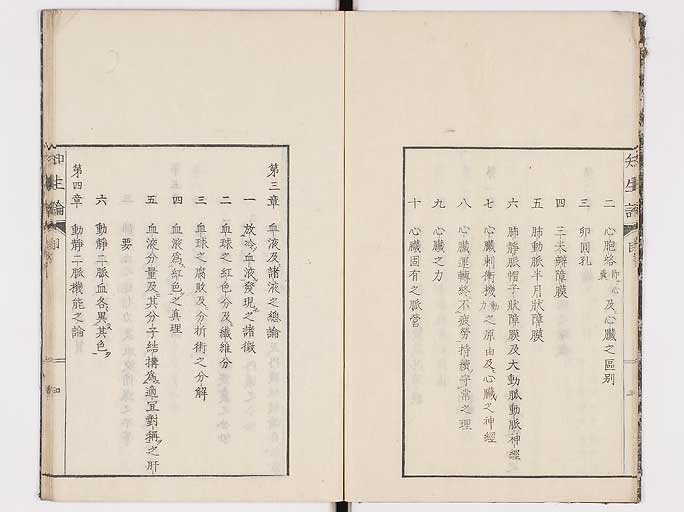 知生論
二 心胞絡即心囊及心臟之區別
三 卵圓孔
四 三尖瓣障膜
五 肺動脈半月狀障膜
六 肺靜脈帽子狀障膜及大動脈動脈神經
七 心臟刺衝機動力之原由及心臟之神經
八 心臟運轉終不疲勞持續守常之理
九 心臟之力
十 心臟固有之脈管
第三章 血液及諸液之總論
一 放冷血液發現之諸徵
二 血球之紅色分及纖維分
三 血球之腐敗及分析術之分解
四 血液為紅色之真理
五 血液分量及其分子結構為適宜對稱之肝
要
六 動靜二脈血各異其色
第四章 動靜二脈機能之論
知生論